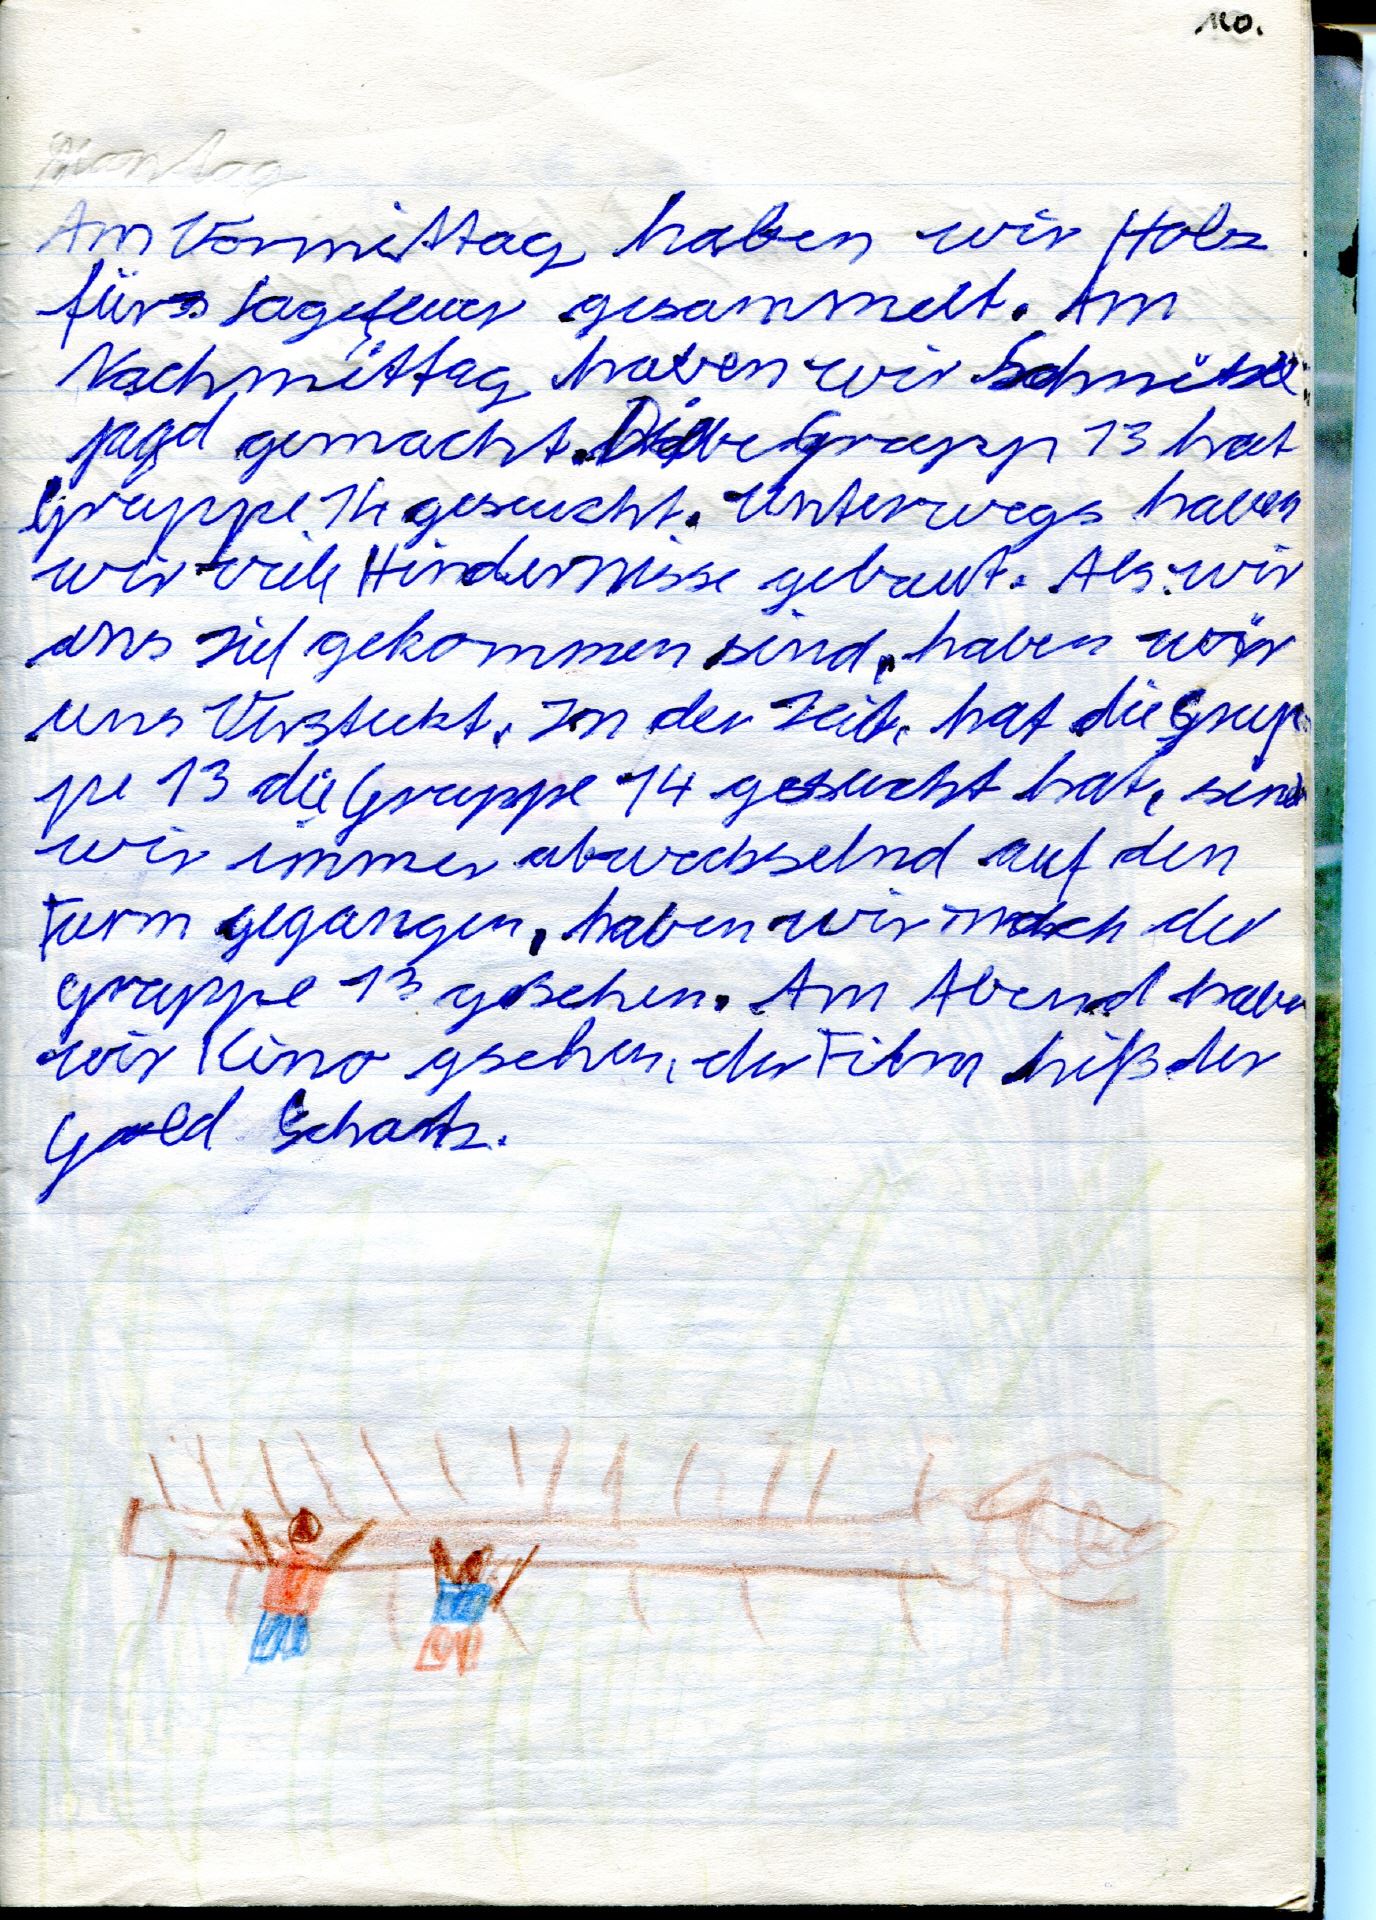 110.
Montag
Am Vormittag haben wir Holz
fürs Lagefeuer gesammelt. Am
Nachmittag haben wir Schnitzel
jagd gemacht. Die Grupp 13 hat
Gruppe 14 gesucht. Unterwegs haben
wir viele Hindernisse gebaut. Als wir
ans Ziel gekommen sind, haben wir
uns Versteckt. In der Zeit, hat die Grup
pe 13 die Gruppe 14 gesucht hat, sind
wir immer abwechselnd auf den
Turm gegangen, haben wir nach der
Gruppe 13 gesehen. Am Abend haben
wir Kino gsehen, der Film hiß der
Gold Schatz.